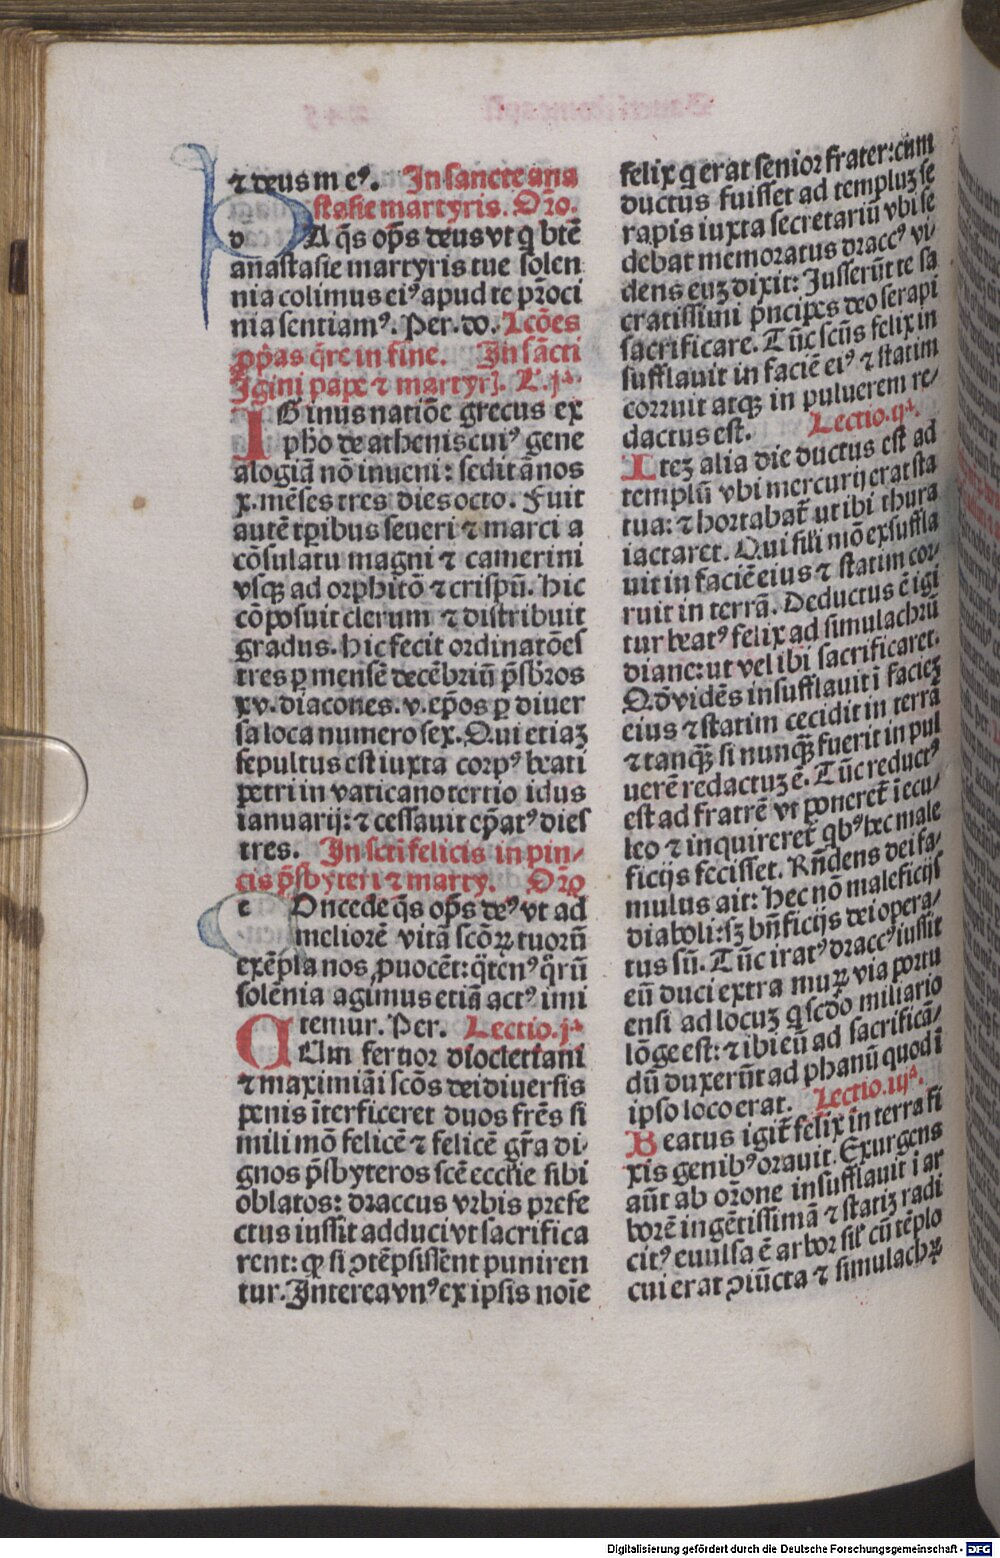 ⁊ deus m eꝰ. In sancte ana
stasie martyris. Oro.
DA q̄s op̄s deus vt q̄ btē
anastasie martyris tue solen
nia colimus eiꝰ apud te p̄roci
nia sentiamꝰ. Per. do. Lcōes
p̄p̄as q̄re in fine. In sācti
Igini pape ⁊ martyrꝭ. L. jª.
IGinus natiōe grecus ex
pho de athenis cuiꝰ gene
alogiā nō inueni: sedit ānos
x. mēses tres dies octo. Fuit
autē tp̄ibus seueri ⁊ marci a
cōsulatu magni ⁊ camerini
vsqꝫ ad orphitō ⁊ crispū. hic
cōposuit clerum ⁊ distribuit
gradus. hic fecit ordinatōes
tres ꝑ mensē decēbriū p̄sbros
xv. diacones. v. ep̄os ꝑ diuer
sa loca numero sex. Qui etiaꝫ
sepultus est iuxta corpꝰ beati
petri in vaticano tertio idus
ianuarij: ⁊ cessauit ep̄atꝰ dies
tres. In scti felicis in pin/
cis p̄sbyteri ⁊ marty. Oro
COncede q̄s op̄s deꝰ vt ad
meliorē vitā scōꝝ tuorū
exēpla nos ꝓuocēt: q̄tenꝰ q̄rū
solēnia agimus etiā actꝰ imi
temur. Per. Lectio. jª
CUm feruor diocletiani
⁊ maximiāi scōs dei diuersis
penis īterficeret duos frēs si
mili mō felicē ⁊ felicē gr̄a di
gnos p̄sbyteros scē ecclie sibi
oblatos: draccus vrbis prefe
ctus iussit adduci vt sacrifica
rent: ꝙ si ꝯtēpsissent puniren
tur. Interea vnꝰ ex ipsis noīe
felix q erat senior frater: cum
ductus fuisset ad templuꝫ se
rapis iuxta secretariū vbi se
debat memoratus draccꝰ vi/
dens euꝫ dixit: Jusserūt te sa
cratissimi p̄ncipes deo serapi
sacrificare. Tūc scūs felix in
sufflauit in faciē eiꝰ ⁊ statim
corruit atqꝫ in puluerem re/
dactus est. Lectio. ijª.
Iteꝫ alia die ductus est ad
templū vbi mercurij erat sta
tua: ⁊ hortabat̄ ut ibi thura
iactaret. Qui sili mō exsuffla
uit in faciē eius ⁊ statim cor/
ruit in terrā. Deductus ē igi
tur beatꝰ felix ad simulachrū
diane: ut vel ibi sacrificaret.
Qd̄ vidēs insufflauit ī facieꝫ
eius ⁊ statim cecidit in terrā
⁊ tanqꝫ si nunqꝫ fuerit in pul
uerē redactuꝫ ē. Tūc reductꝰ
est ad fratrē vt poneret̄ ī ecu/
leo ⁊ inquireret̄ qbꝰ hec male
ficijs fecisset. Rn̄dens dei fa/
mulus ait: hec nō maleficijs
diaboli: sꝫ bn̄ficijs dei opera/
tus sū. Tūc iratꝰ draccꝰ iussit
eū duci extra muꝝ via portu
ensi ad locuꝫ q scdo miliario
lōge est: ⁊ ibi eū ad sacrificā/
dū duxerūt ad phanū quod ī
ipso loco erat. Lectio. iijª.
Beatus igit̄ felix in terra fi
xis genibꝰ orauit. Exurgens
aūt ab orone insufflauit ī ar
borē ingētissimā ⁊ statiꝫ radi
citꝰ euulsa ē arbor sil̄ cū tēplo
cui erat ꝯiūcta ⁊ simulachꝝ
Digitalisierung gefördert durch die Deutsche Forschungsgemeinschaft - DFG